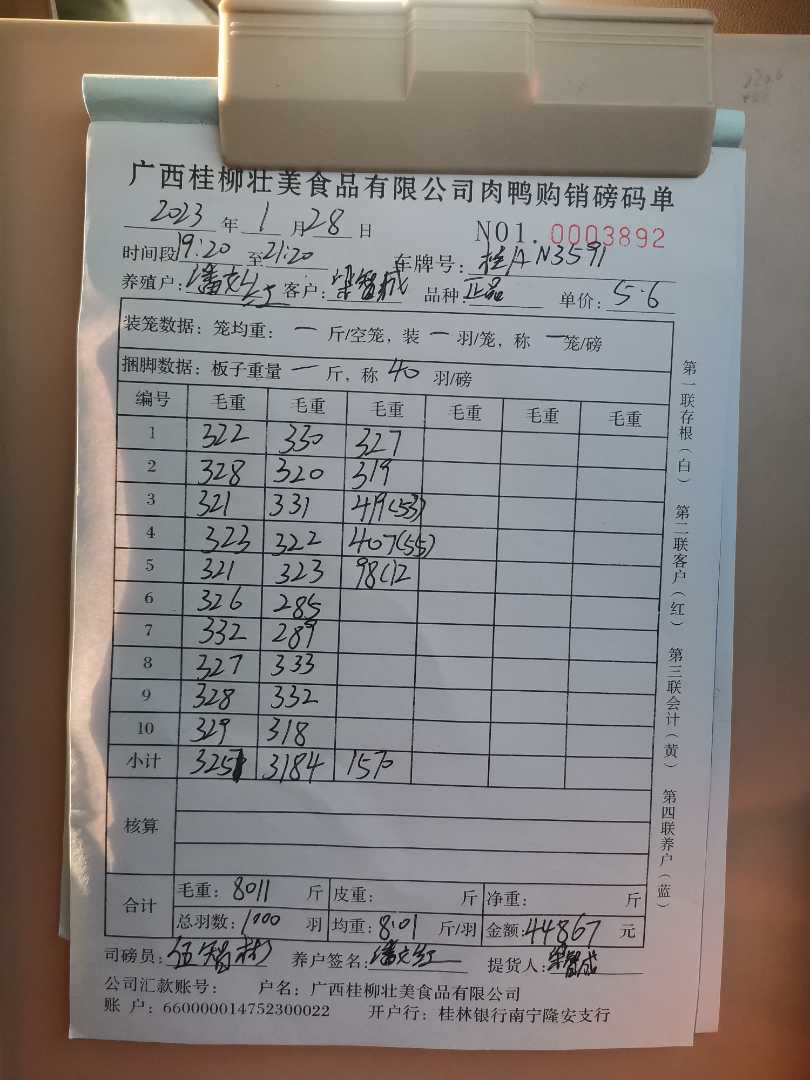 广西桂柳壮美食品有限公司肉鸭购销磅码单
2023 年 1 月 28 日 NO1. 0003892
时间段 19:20 至 21:20 车牌号: 桂A N3591
养殖户: 潘文红 客户: 梁智成 品种: 正品 单价: 5.6
装笼数据: 笼均重: 一 斤/空笼, 装 一 羽/笼, 称 一 笼/磅
捆脚数据: 板子重量 一 斤, 称 40 羽/磅
编号 毛重 毛重 毛重 毛重 毛重 毛重
1 322 330 327
2 328 320 319
3 321 331 419(53)
4 323 322 407(55)
5 321 323 98(12
6 326 285
7 332 289
8 327 333
9 328 332
10 329 318
小计 3257 3184 1570
核算
合计 毛重: 8011 斤 皮重: 斤 净重: 斤
总羽数: 1000 羽 均重: 8.01 斤/羽 金额: 44867 元
司磅员: 伍智彬 养户签名: 潘文红 提货人: 梁智成
公司汇款账号: 户名: 广西桂柳壮美食品有限公司
账 户: 660000014752300022 开户行: 桂林银行南宁隆安支行
第一联存根(白) 第二联客户(红) 第三联会计(黄) 第四联养户(蓝)